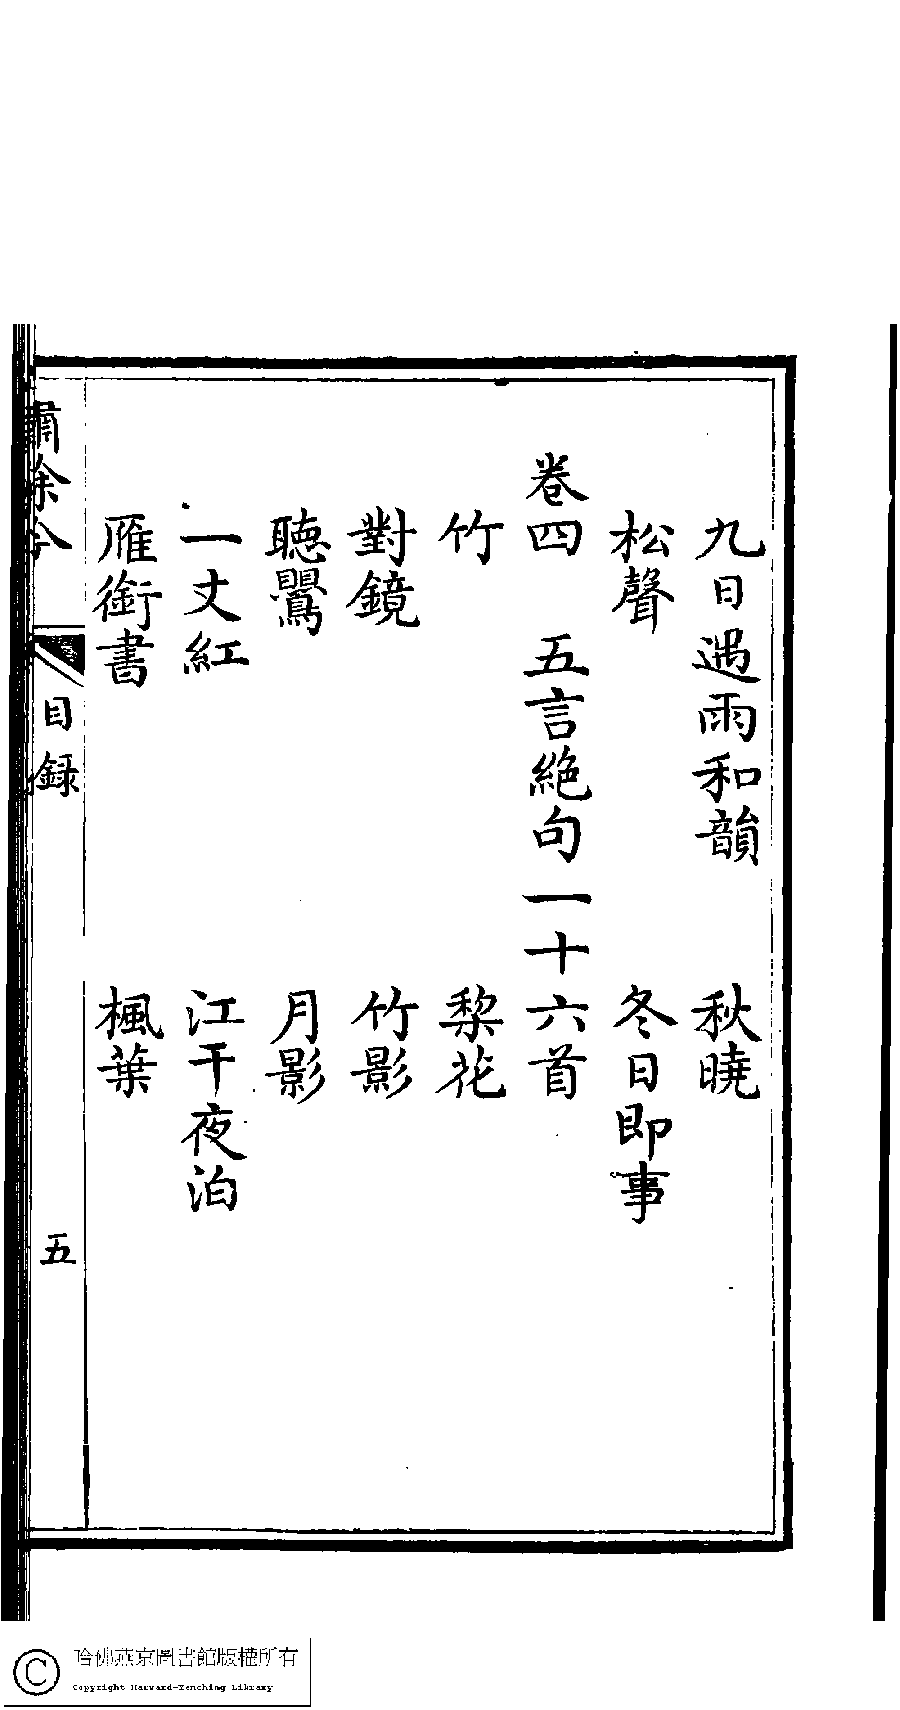 九日遇雨和韻　秋曉
松聲　冬日即事
卷四　五言絶句一十六首
竹　梨花
對鏡　竹影
聽鸎　月影
一丈紅　江干夜泊
雁銜書　楓葉
餘
目録
五
哈佛燕京圖書館版權所有
Copyright Harvard-Yenching Library